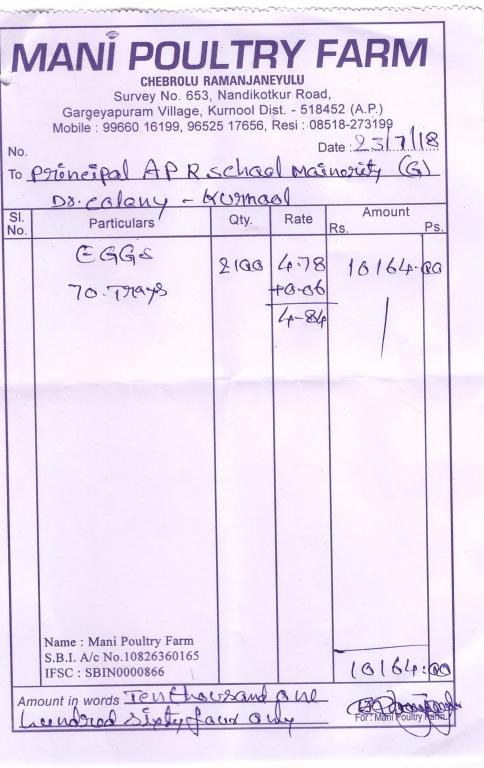 MANI POULTRY FARM
CHEBROLU RAMANJANEYULU
Survey No. 653, Nandikotkur Road,
Gargeyapuram Village, Kurnool Dist. - 518452 (A.P.)
Mobile : 99660 16199, 96525 17656, Resi : 08518-273199
No. Date : 23/7/18
To Principal A P R School Mainority (G)
Ds. Calony - Kurnool
Sl. No. Particulars Qty. Rate Amount Rs. Ps.
EGGs 2100 4.78 10164.00
70. Trays +0.06
4-84
Name : Mani Poultry Farm
S.B.I. A/c No.10826360165
IFSC : SBIN0000866
10164.00
Amount in words Ten thousand one
hundred sixty four only
For : Mani Poultry Farm